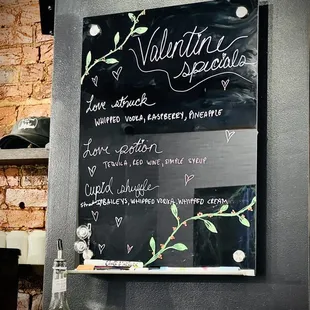 Valentine
specials
Love struck
WHIPPED VODKA, RASPBERRY, PINEAPPLE
Love potion
TEQUILA, RED WINE, SIMPLE SYRUP
Cupid shuffle
BAILEYS, WHIPPED VODKA, WHIPPED CREAM